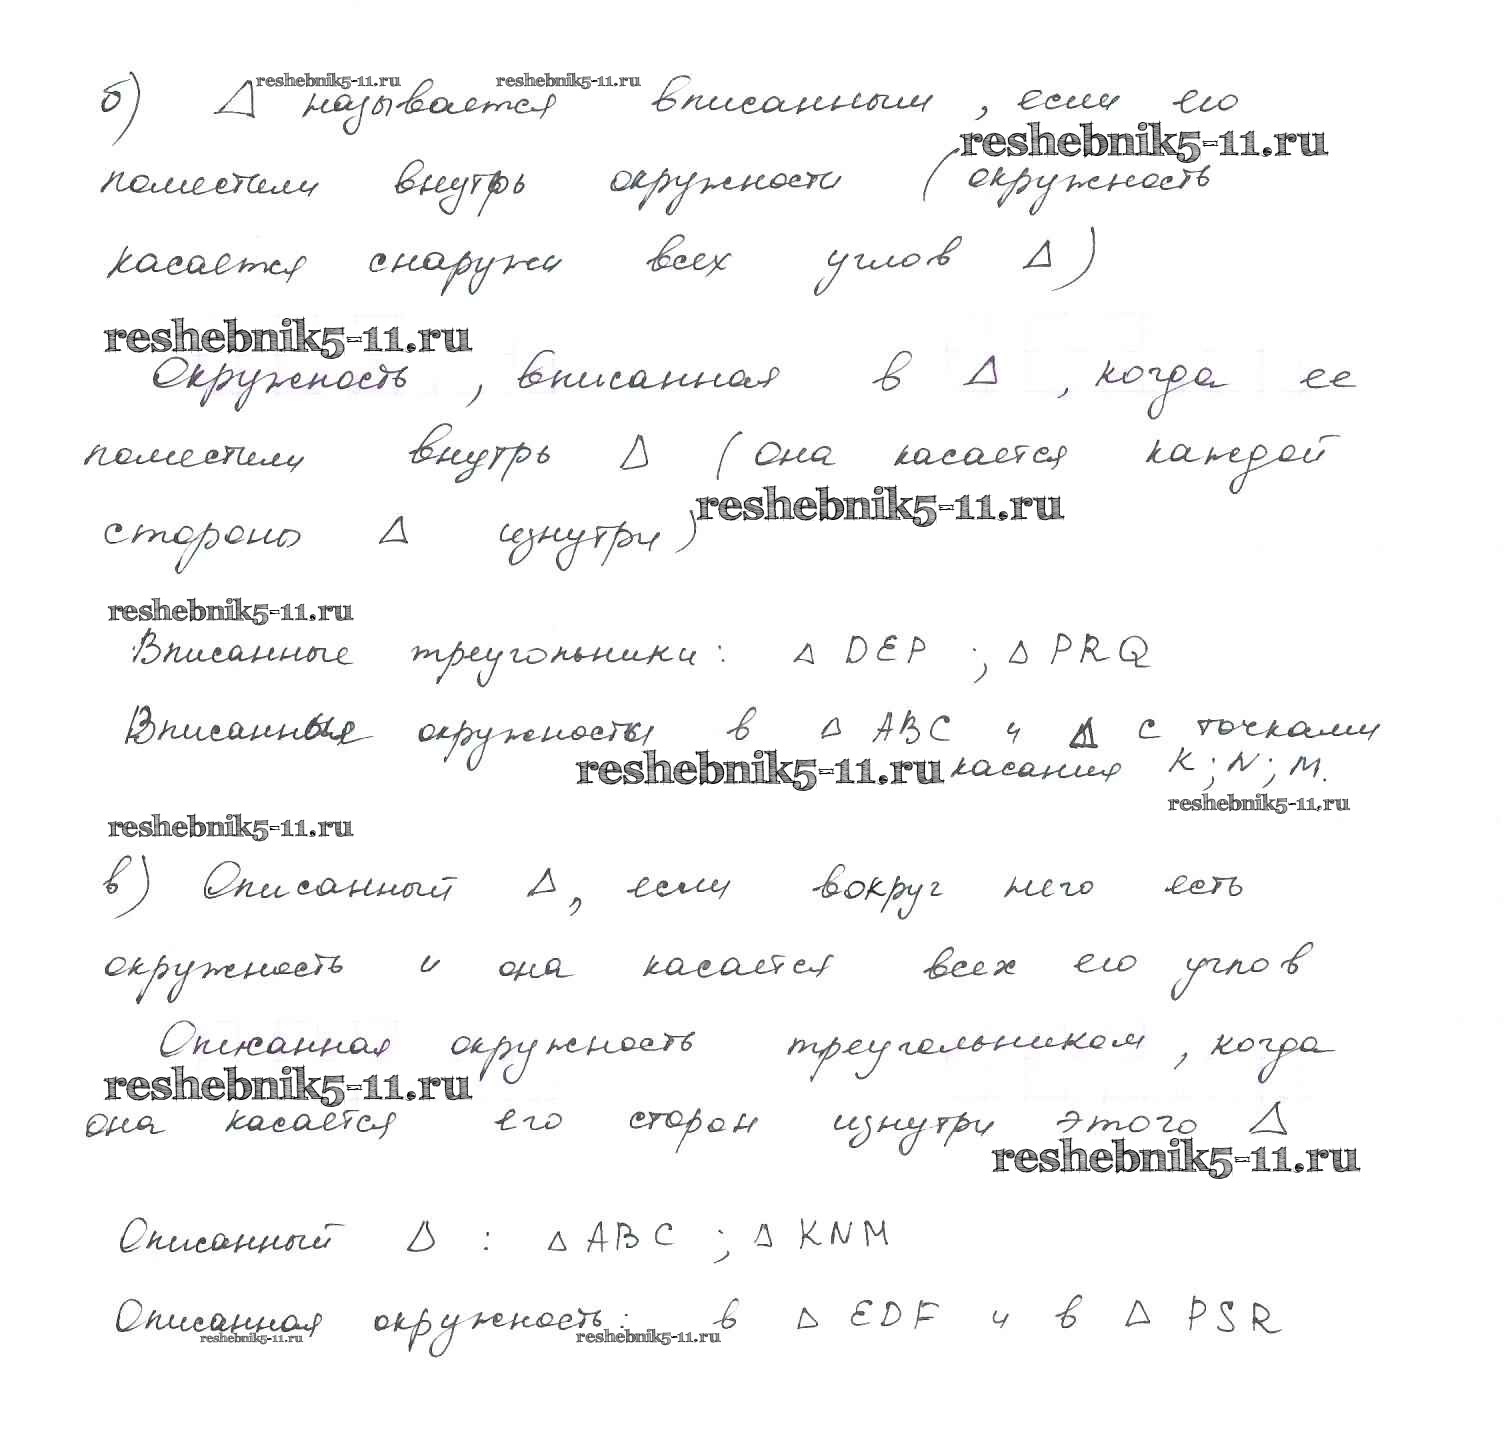 reshebnik5-11.ru reshebnik5-11.ru
б) Δ называется вписанным, если его
reshebnik5-11.ru
поместили внутрь окружности (окружность
касается снаружи всех углов Δ)
reshebnik5-11.ru
Окружность, вписанная в Δ, когда ее
поместили внутрь Δ (она касается каждой
reshebnik5-11.ru
стороны Δ изнутри)
reshebnik5-11.ru
Вписанные треугольники: Δ DEP ; Δ PRQ
Вписанные окружности в Δ ABC и Δ с точками
reshebnik5-11.ru касания K; N; M.
reshebnik5-11.ru
reshebnik5-11.ru
в) Описанный Δ, если вокруг него есть
окружность и она касается всех его углов
Описанная окружность треугольником, когда
reshebnik5-11.ru
она касается его сторон изнутри этого Δ
reshebnik5-11.ru
Описанный Δ : Δ ABC ; Δ KNM
Описанная окружность: в Δ EDF и в Δ PSR
reshebnik5-11.ru reshebnik5-11.ru